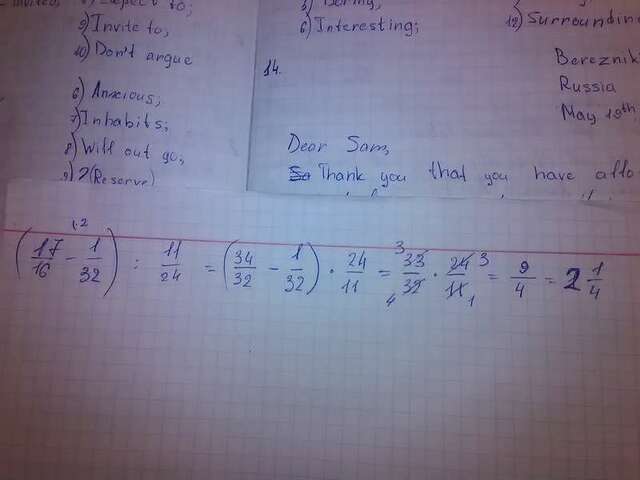 5) Invite to,
10) Don't argue
6) Anxious,
7) Inhabits;
8) Will out go,
9) ? (Reserve)
6) Interesting;
12) Surroundin
14.
Berezniki
Russia
May 19th,
Dear Sam,
So Thank you that you have allo
·2
(17/16 - 1/32) : 11/24 = (34/32 - 1/32) · 24/11 = 33/32 · 24/11 = 9/4 = 2 1/4
3 3
4 1